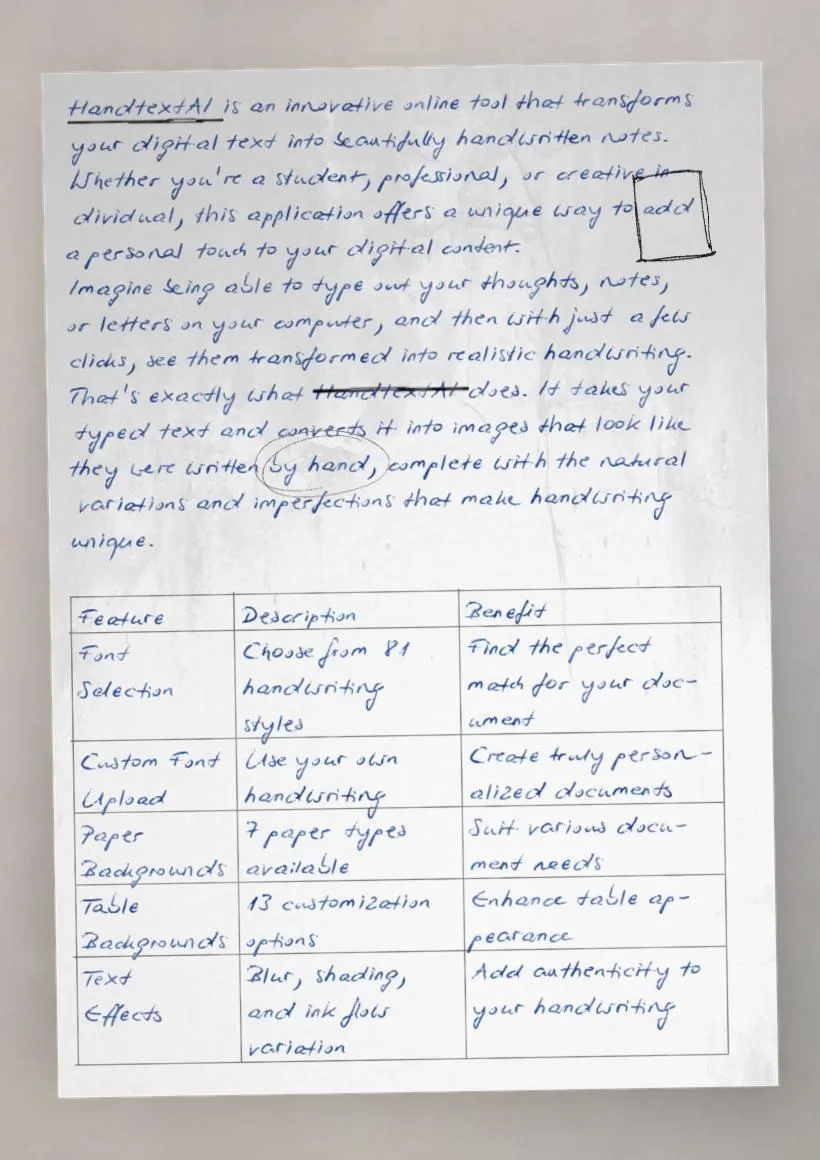 HandtextAI is an innovative online tool that transforms
your digital text into beautifully handwritten notes.
Whether you're a student, professional, or creative in
dividual, this application offers a unique way to add
a personal touch to your digital content.
Imagine being able to type out your thoughts, notes,
or letters on your computer, and then with just a few
clicks, see them transformed into realistic handwriting.
That's exactly what HandtextAI does. It takes your
typed text and converts it into images that look like
they were written by hand, complete with the natural
variations and imperfections that make handwriting
unique.
Feature Description Benefit
Font Choose from 81 Find the perfect
Selection handwriting match for your doc-
styles ument
Custom Font Use your own Create truly person-
Upload handwriting alized documents
Paper 7 paper types Suit various docu-
Backgrounds available ment needs
Table 13 customization Enhance table ap-
Backgrounds options pearance
Text Blur, shading, Add authenticity to
Effects and ink flow your handwriting
variation